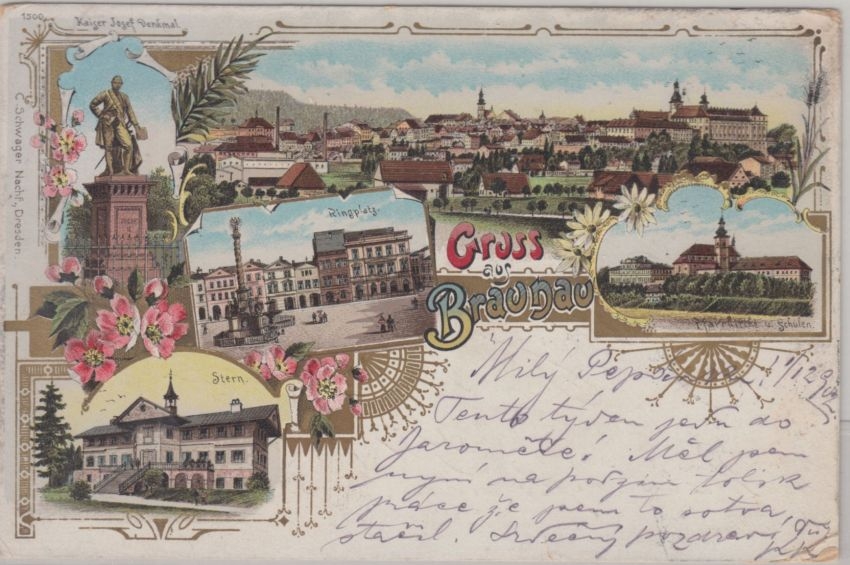 1500
Kaiser Josef Denkmal.
C. Schwager Nachf., Dresden.
Ringplatz.
Gruss
aus
Braunau
Pfarrkirche u. Schulen.
Stern.
Milý
Tento týden jedu do
Jaroměře! Měl jsem
nyní na podzim tolik
práce že jsem to sotva
stačil. Srdečný pozdrav